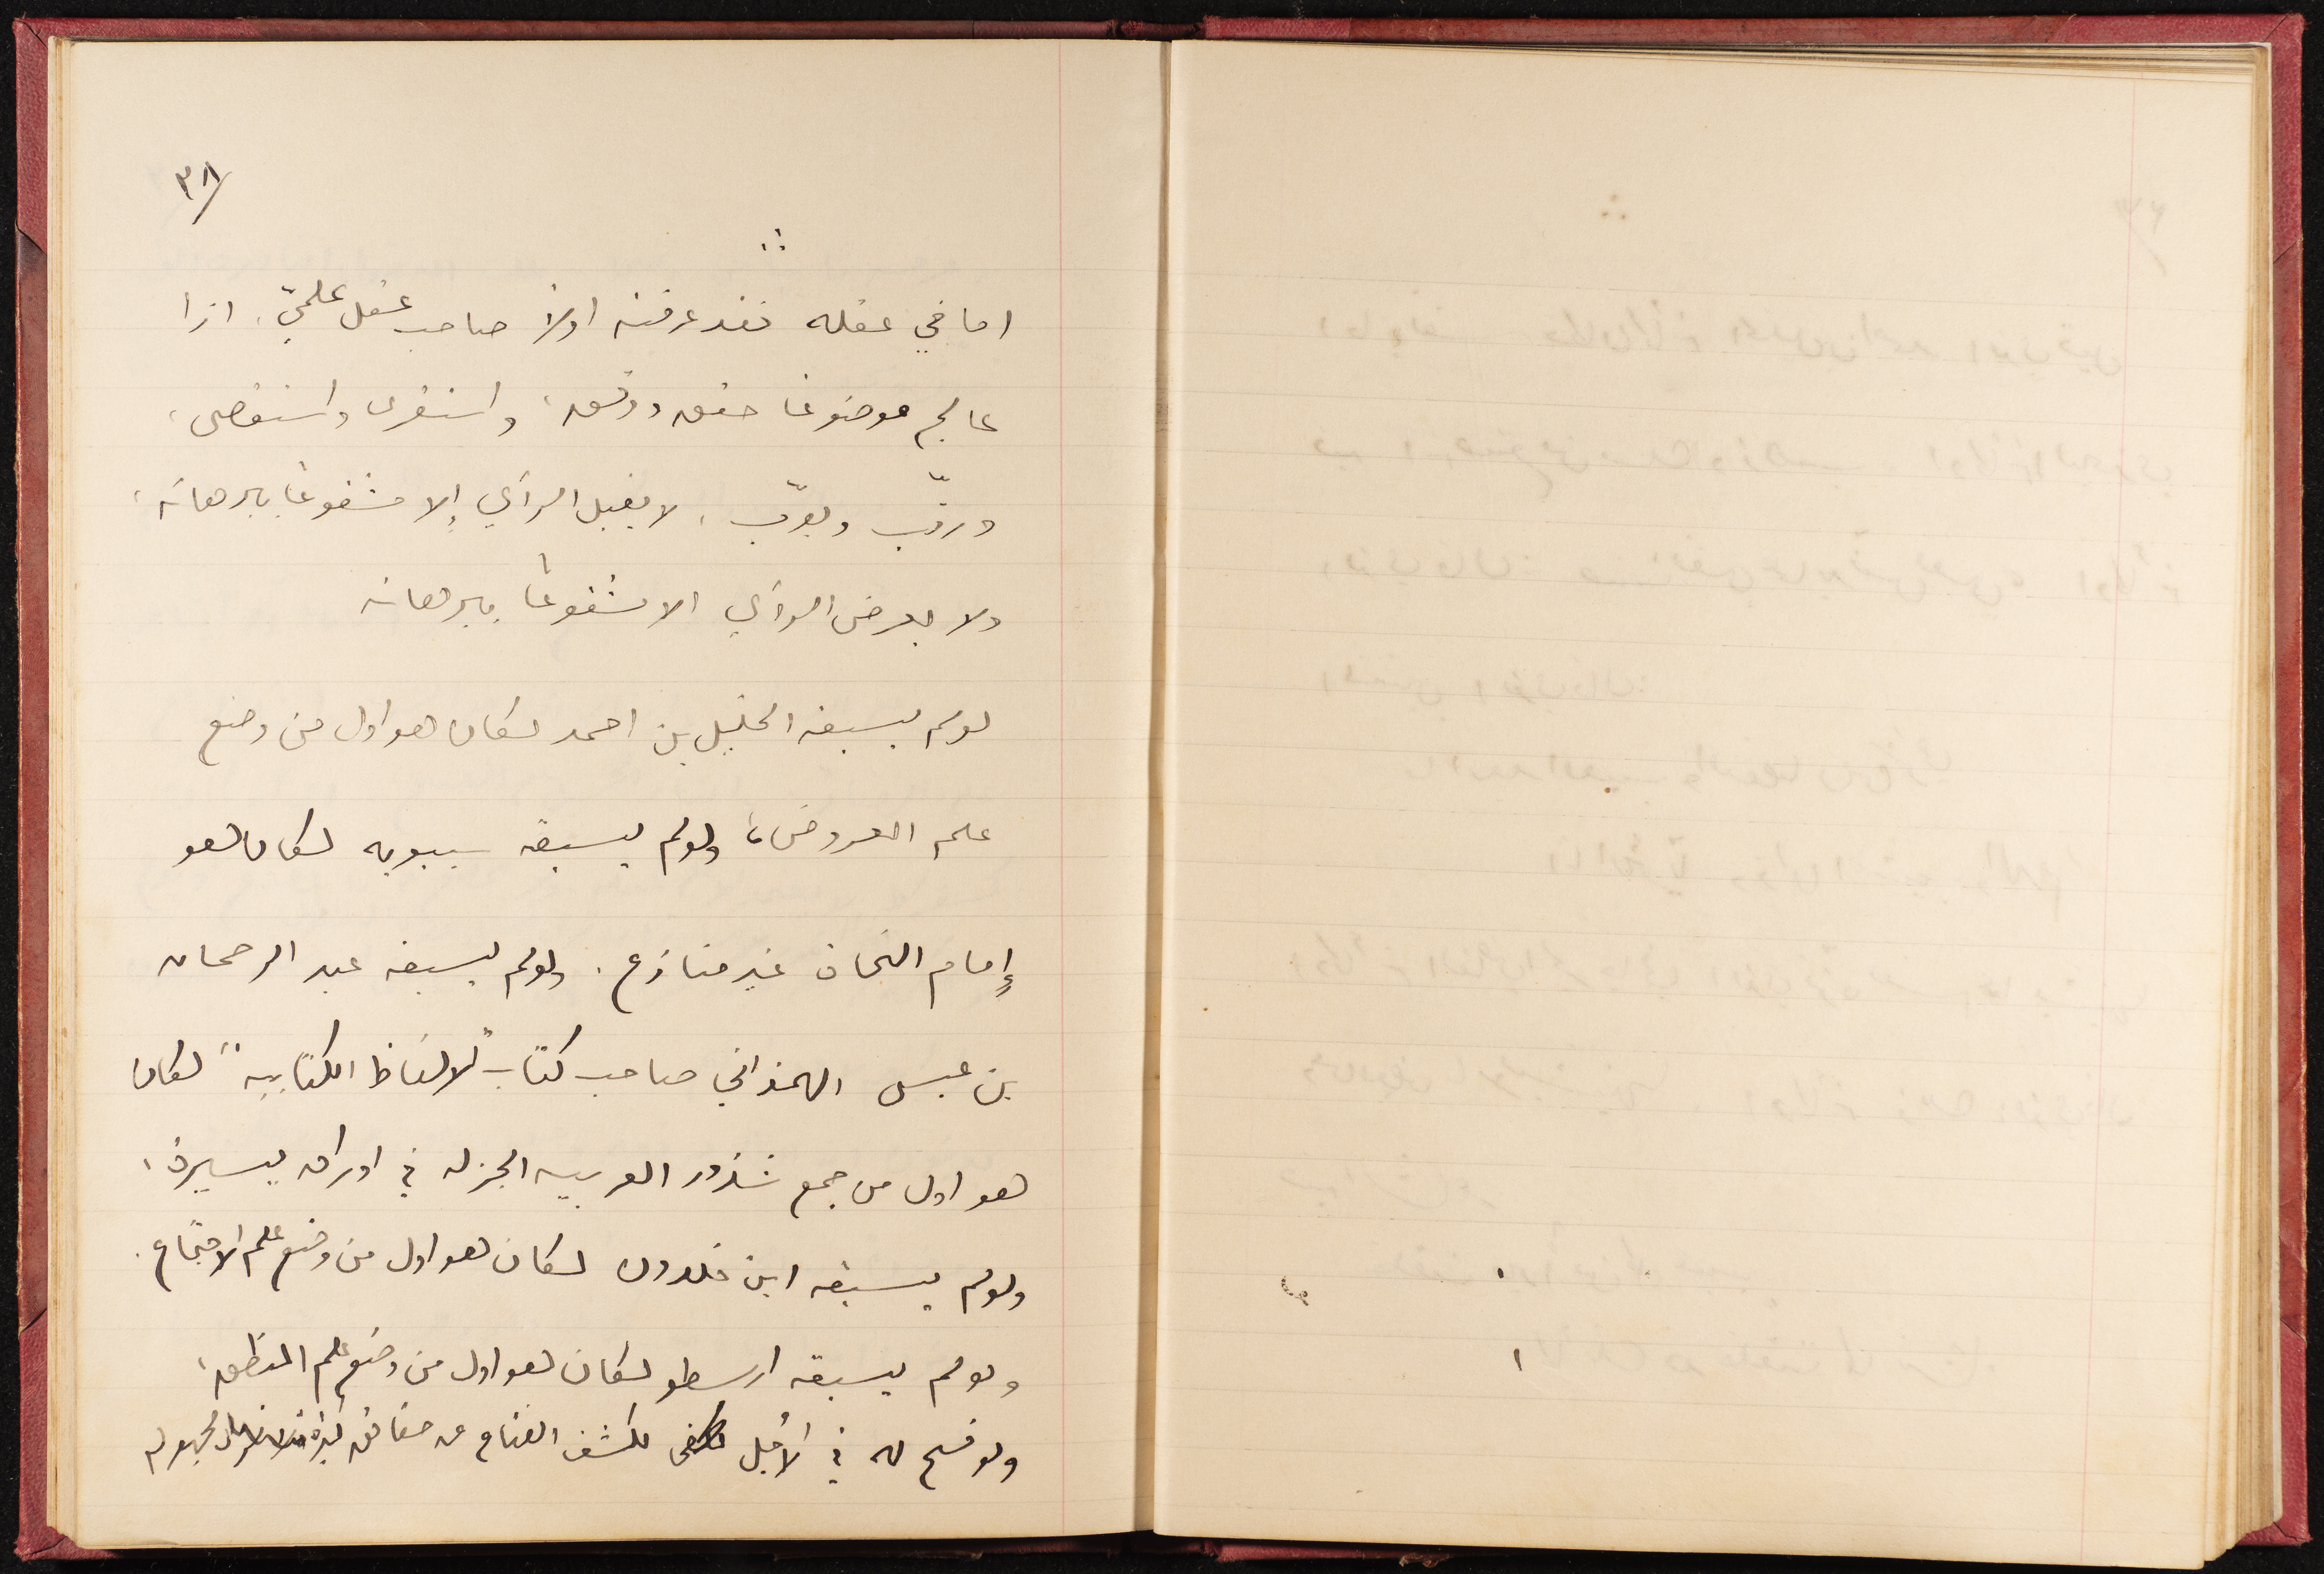 ٣٨/
∴
اما في عقله فقد عرفته اولاً صاحب عقل علميّ، اذا
عالج موضوعا حقق ودقق، واستقرى واستقصى،
ورتّب وبوّب، لا يقبل الرأي إلا مشفوعًا ببرهانه،
ولا يعرض الرأي الا مشفوعًا ببرهانه
لو لم يسبقه الخليل بن احمد لكان هو اول من وضع
علم العروض، ولو لم يسبقه سيبويه لكان هو
إمام النحاة غير منازع. ولو لم يسبقه عبد الرحمان
بن عيسى الهمذاني صاحب كتاب "الالفاظ الكتابيه" لكان
هو اول من جمع شذور العربيه الجزله في اوراق يسيرة،
ولو لم يسبقه ابن خلدون لكان هو اول من وضع علم الاجتماع.
ولو لم يسبقه ارسطو لكان هو اول من وضع علم المنطق،
ولو فسح له في الأجل لكشف القناع عن حقائق كثيرة مجهوله